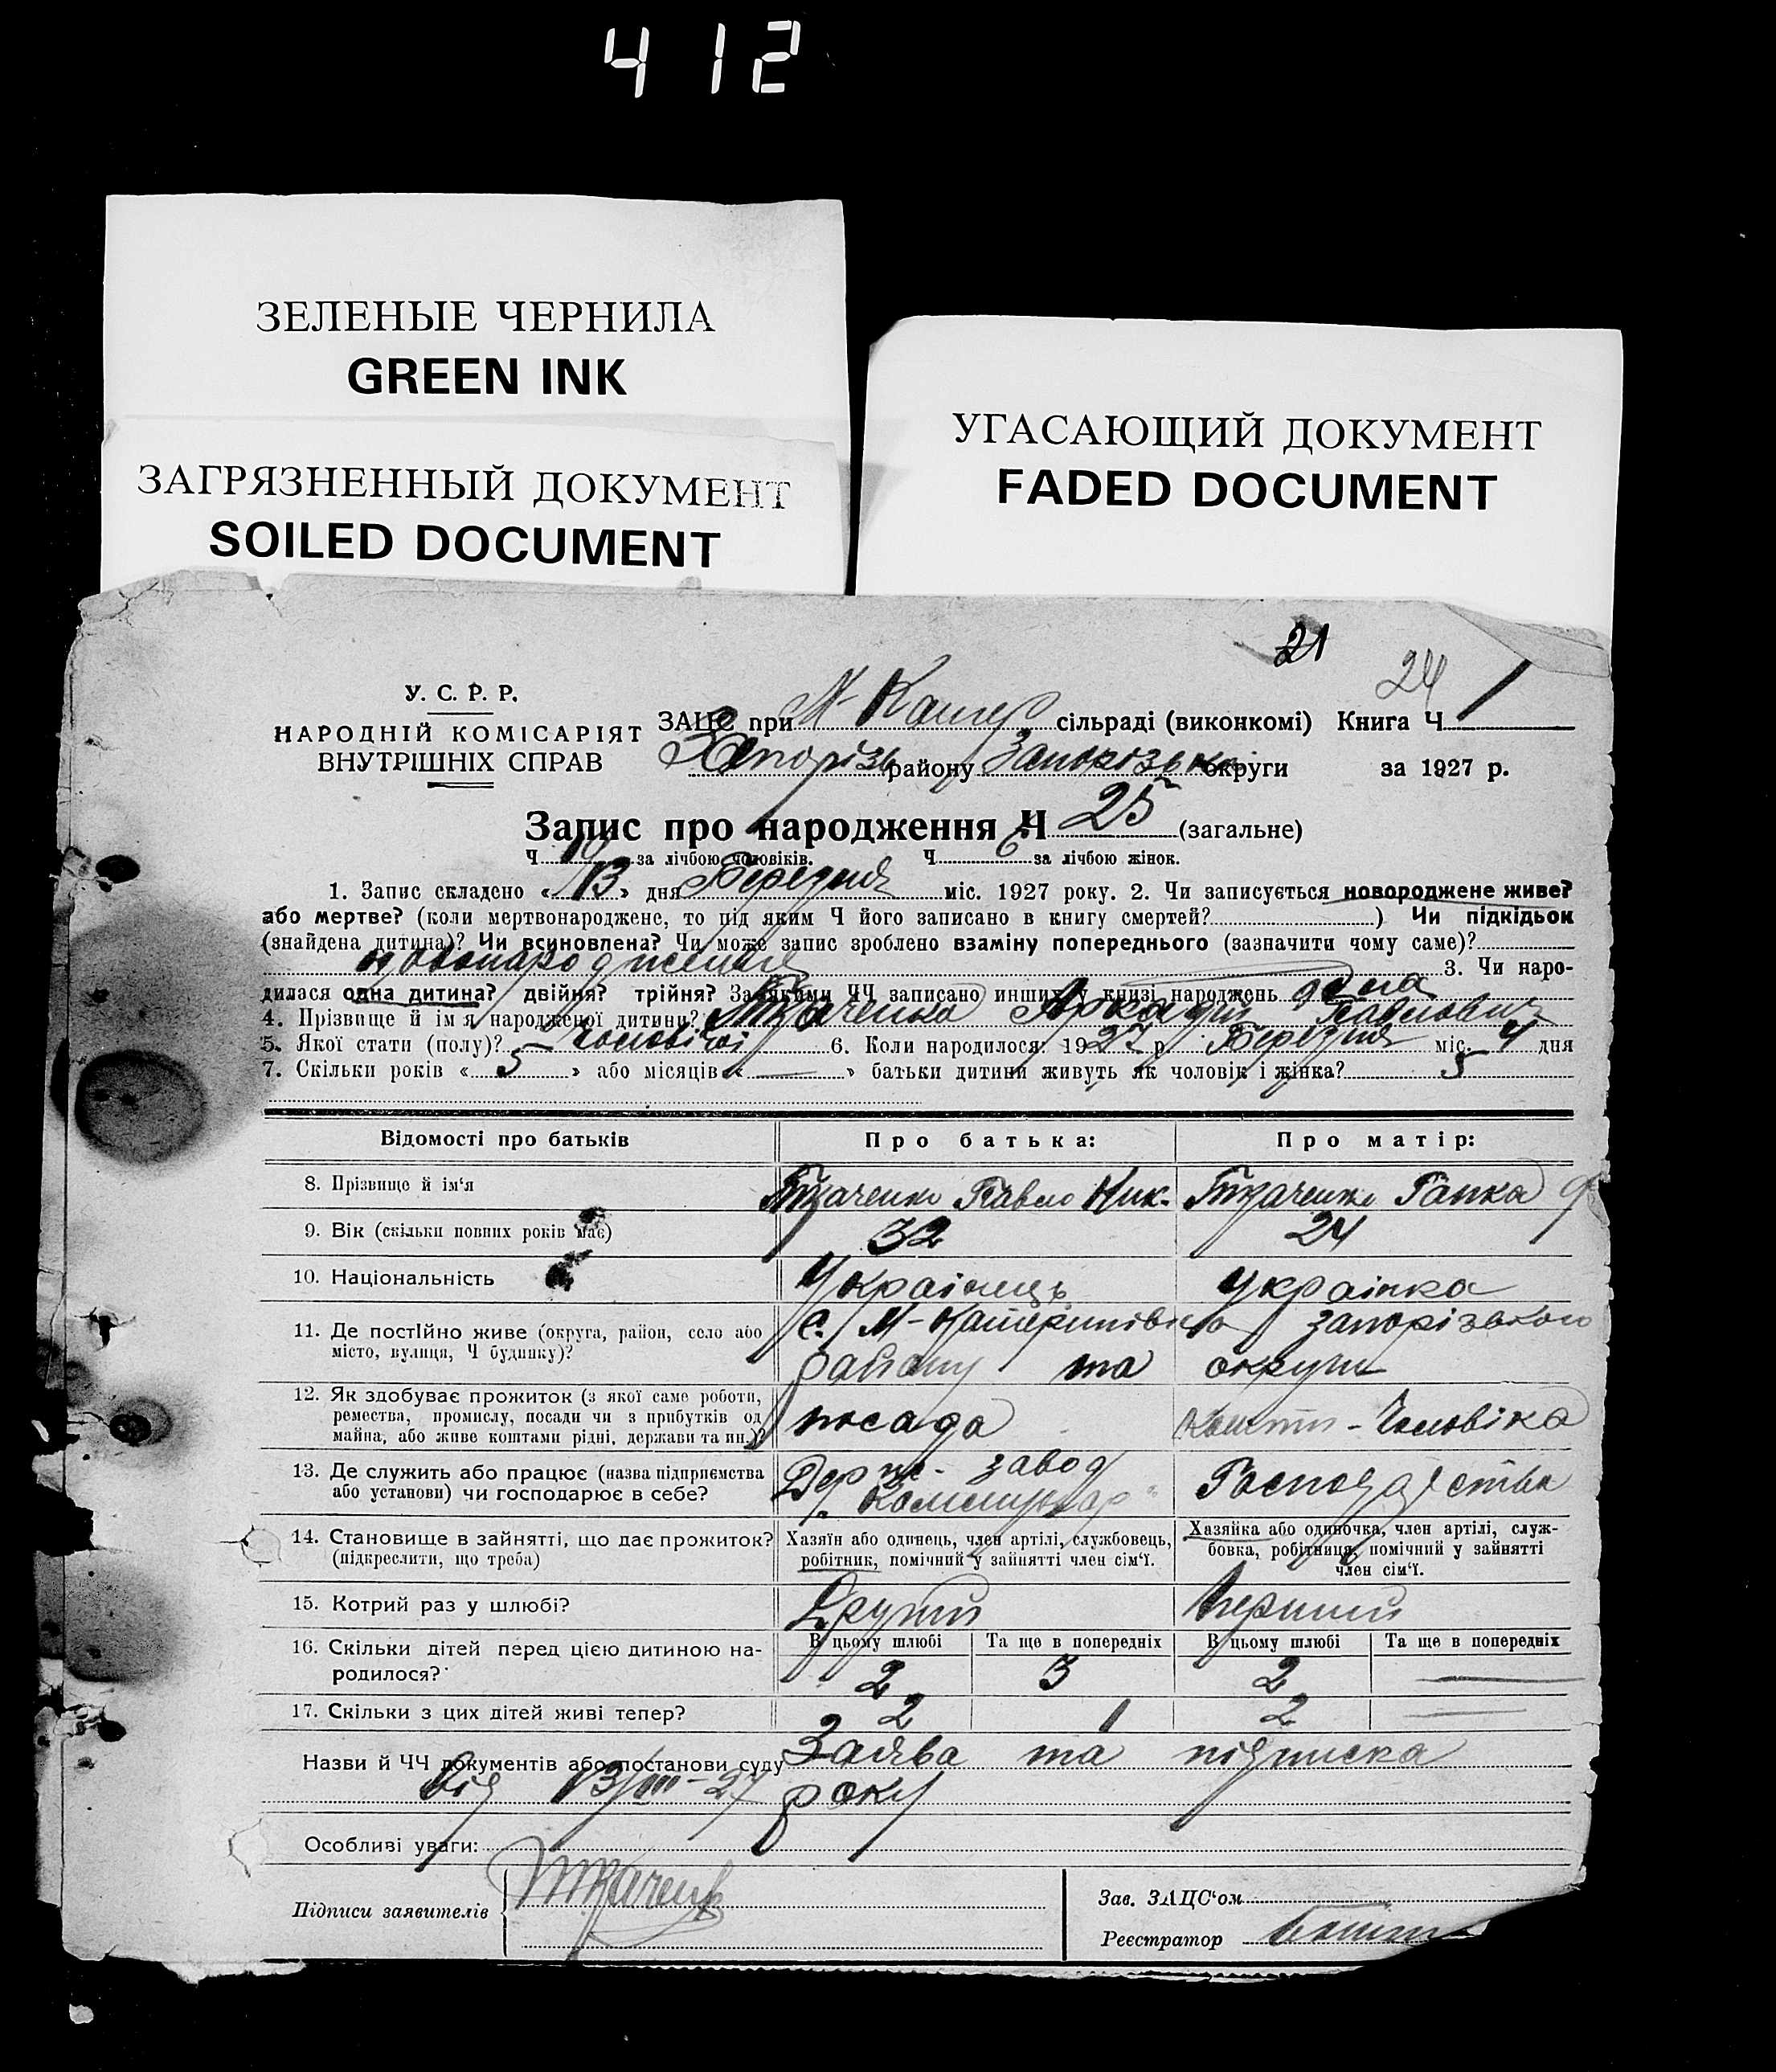 412
ЗЕЛЕНЫЕ ЧЕРНИЛА
GREEN INK
ЗАГРЯЗНЕННЫЙ ДОКУМЕНТ
SOILED DOCUMENT
УГАСАЮЩИЙ ДОКУМЕНТ
FADED DOCUMENT
21
24
У. С. Р. Р.
НАРОДНІЙ КОМІСАРІЯТ
ВНУТРІШНІХ СПРАВ
ЗАЦС при М-Катер сільраді (виконкомі) Книга Ч 1
Запорізь району Запорізько округи за 1927 р.
Запис про народження Ч 25 (загальне)
Ч 19 за лічбою чоловіків. Ч 6 за лічбою жінок.
1. Запис складено «13» дня Березня міс. 1927 року. 2. Чи записується новороджене живе?
або мертве? (коли мертвонароджене, то під яким Ч його записано в книгу смертей? ) Чи підкідьок
(знайдена дитина)? Чи всиновлена? Чи може запис зроблено взаміну попереднього (зазначити чому саме)?
новонародження 3. Чи наро-
дилася одна дитина? двійня? трійня? За якими ЧЧ записано инших у книзі народжень одна
4. Прізвище й ім'я народженої дитини? Ткаченко Аркадій Павлович
5. Якої стати (полу)? Чоловічої 6. Коли народилося: 1927 р. Березня міс. 4 дня
7. Скільки років « 5 » або місяців « — » батьки дитини живуть як чоловік і жінка? 5
Відомості про батьків Про батька: Про матір:
8. Прізвище й ім'я Ткаченко Павло Ник. Ткаченко Ганка
9. Вік (скільки повних років має) 32 24
10. Національність Українець Українка
11. Де постійно живе (округа, район, село або с. М-Катеринівка Запорізького
місто, вулиця, Ч будинку)? району та округи
12. Як здобуває прожиток (з якої саме роботи,
ремества, промислу, посади чи з прибутків од посада Кошти - Чоловіка
майна, або живе коштами рідні, держави та ин.)?
13. Де служить або працює (назва підприємства Держ- завод
або установи) чи господарює в себе? "Комунар" Господарства
14. Становище в зайнятті, що дає прожиток? Хазяїн або одинець, член артілі, службовець, Хазяйка або одиночка, член артілі, служ-
(підкреслити, що треба) робітник, помічний у зайнятті член сім'ї. бовка, робітниця, помічний у зайнятті
член сім'ї.
15. Котрий раз у шлюбі? Другий Перший
16. Скільки дітей перед цією дитиною на- В цьому шлюбі Та ще в попередніх В цьому шлюбі Та ще в попередніх
родилося? 2 3 2 —
17. Скільки з цих дітей живі тепер? 2 1 2 —
Назви й ЧЧ документів або постанови суду Заява та підписка
від 13/III-27 року
Особливі уваги:
Підписи заявителів Ткаченко
Зав. ЗАЦС'ом
Реєстратор